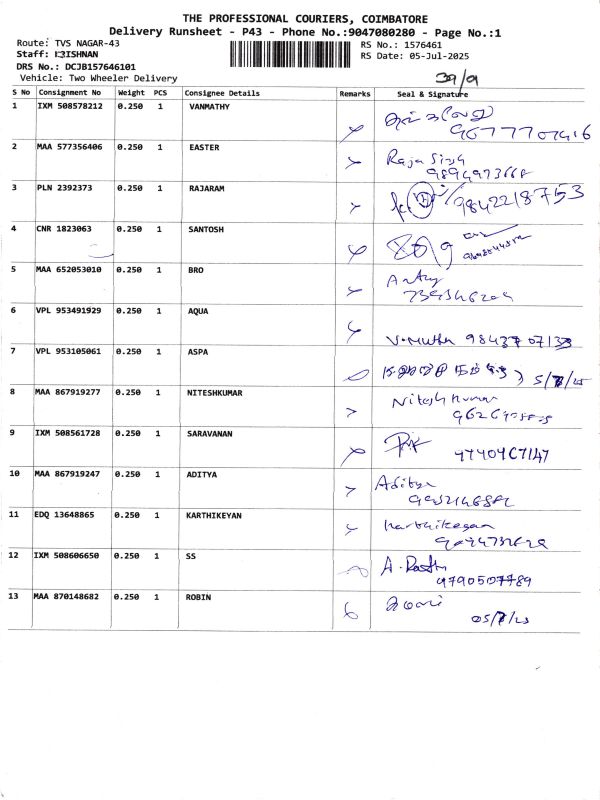 THE PROFESSIONAL COURIERS, COIMBATORE
Delivery Runsheet - P43 - Phone No.:9047080280 - Page No.:1
Route: TVS NAGAR-43
RS No.: 1576461
Staff: KRISHNAN
RS Date: 05-Jul-2025
DRS No.: DCJB157646101
Vehicle: Two Wheeler Delivery
39/9
S No Consignment No Weight PCS Consignee Details Remarks Seal & Signature
1 IXM 508578212 0.250 1 VANMATHY
2 MAA 577356406 0.250 1 EASTER Raja Singh
3 PLN 2392373 0.250 1 RAJARAM 9842218753
4 CNR 1823063 0.250 1 SANTOSH
5 MAA 652053010 0.250 1 BRO Antny
6 VPL 953491929 0.250 1 AQUA
V. Muthu 9843707133
7 VPL 953105061 0.250 1 ASPA
5/7/25
8 MAA 867919277 0.250 1 NITESHKUMAR Nitesh Kumar
9 IXM 508561728 0.250 1 SARAVANAN
10 MAA 867919247 0.250 1 ADITYA Aditya
11 EDQ 13648865 0.250 1 KARTHIKEYAN Karthikeyan
12 IXM 508606650 0.250 1 SS
9790507789
13 MAA 870148682 0.250 1 ROBIN
05/7/25